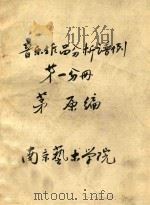 音乐作品分析谱例
第一分册
茅原编
南京艺术学院